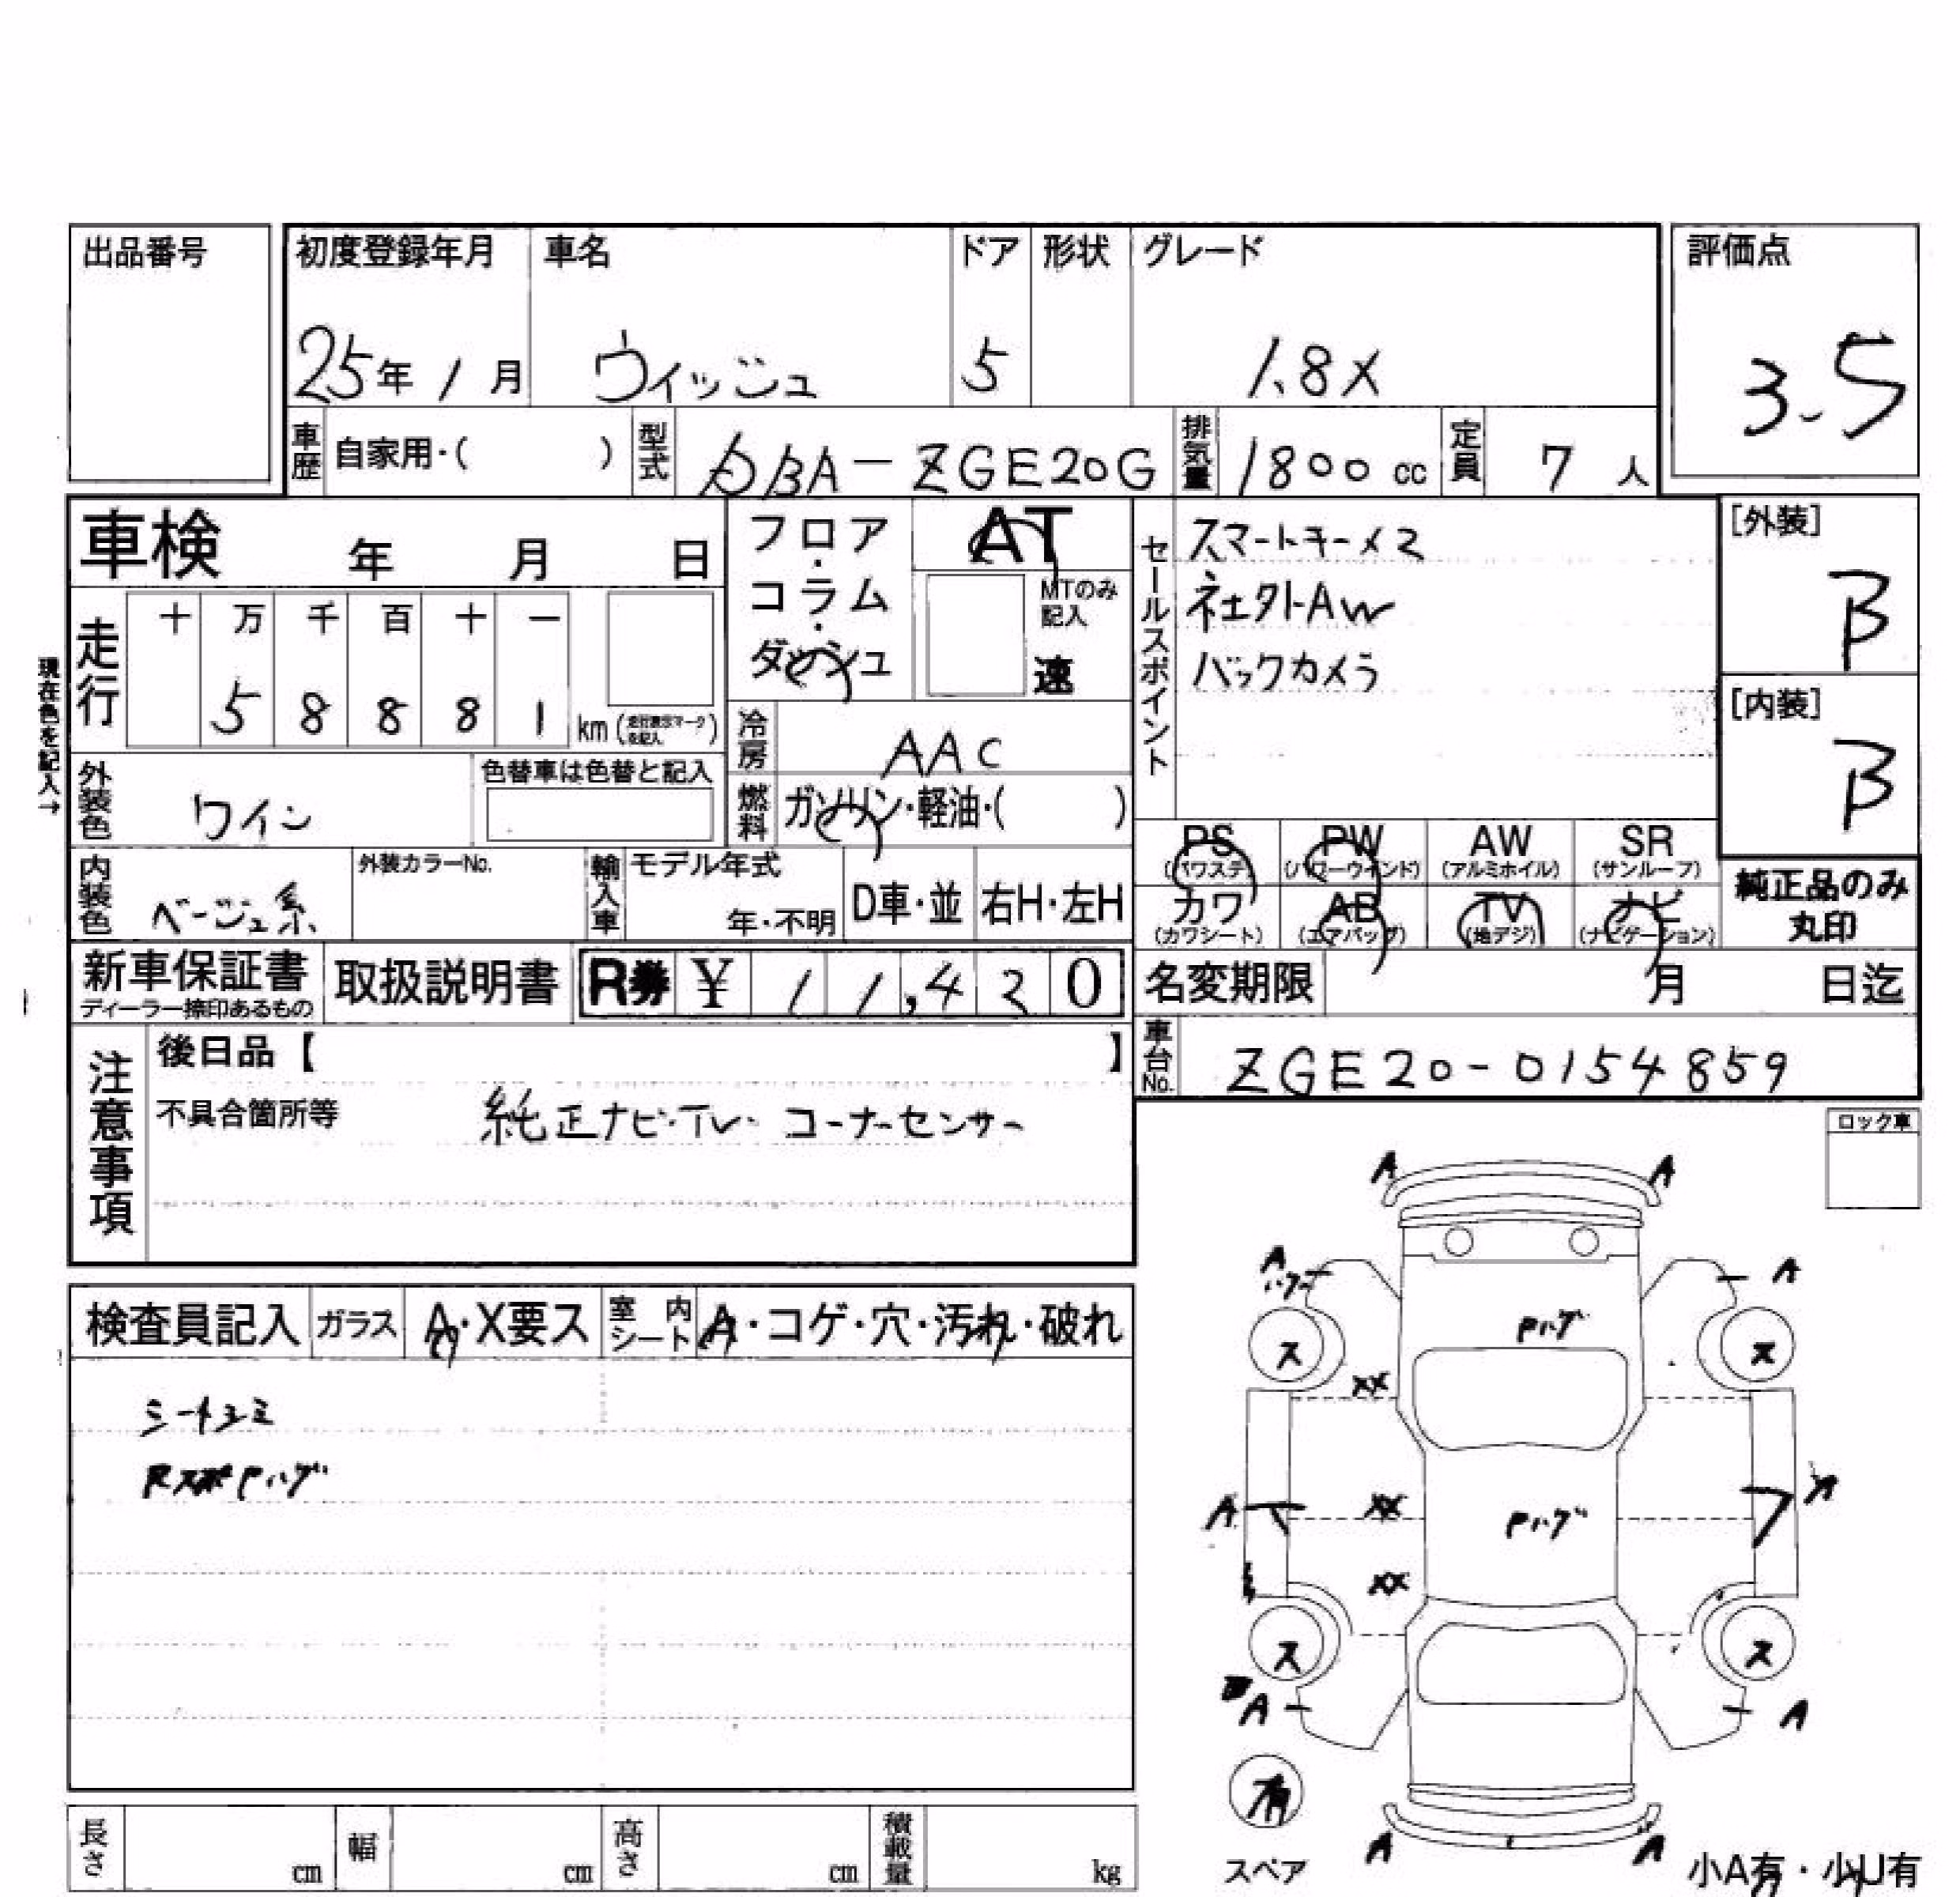 出品番号
初度登録年月 車名 ドア 形状 グレード 評価点
25年 1月 ウィッシュ 5 1.8X 3.5
車歴 自家用・( ) 型式 DBA-ZGE20G 排気量 1800cc 定員 7人
車検 年 月 日
フロア・コラム・ダッシュ
AT
MTのみ記入
速
セールスポイント
スマートキー×2
社外AW
バックカメラ
[外装]
B
[内装]
B
現在色を記入→
走行 十 万 千 百 十 一
5 8 8 8 1 km (走行表示マークを記入)
冷房 AAC
燃料 ガソリン・軽油・( )
外装色 ワイン
色替車は色替と記入
PS (パワステ) PW (パワーウインド) AW (アルミホイル) SR (サンルーフ)
カワ (カワシート) AB (エアバッグ) TV (地デジ) ナビ (ナビゲーション)
純正品のみ
丸印
内装色 ベージュ系 外装カラーNo. 輸入車 モデル年式 年・不明 D車・並 右H・左H
新車保証書 ディーラー捺印あるもの 取扱説明書 R券 ¥ 11,420
名変期限 月 日迄
車台No. ZGE20-0154859
注意事項
後日品【 】
不具合箇所等 純正ナビ・TV・コーナーセンサー
ロック車
検査員記入 ガラス A・X要ス 室内シート A・コゲ・穴・汚れ・破れ
シートシミ
RスポPハゲ
A A
A ハゲ A
Pハゲ
ス ス
XX
A XX Pハゲ A
XX
ス ス
A A
有
スペア
A A
小A有・小U有
長さ cm 幅 cm 高さ cm 積載量 kg